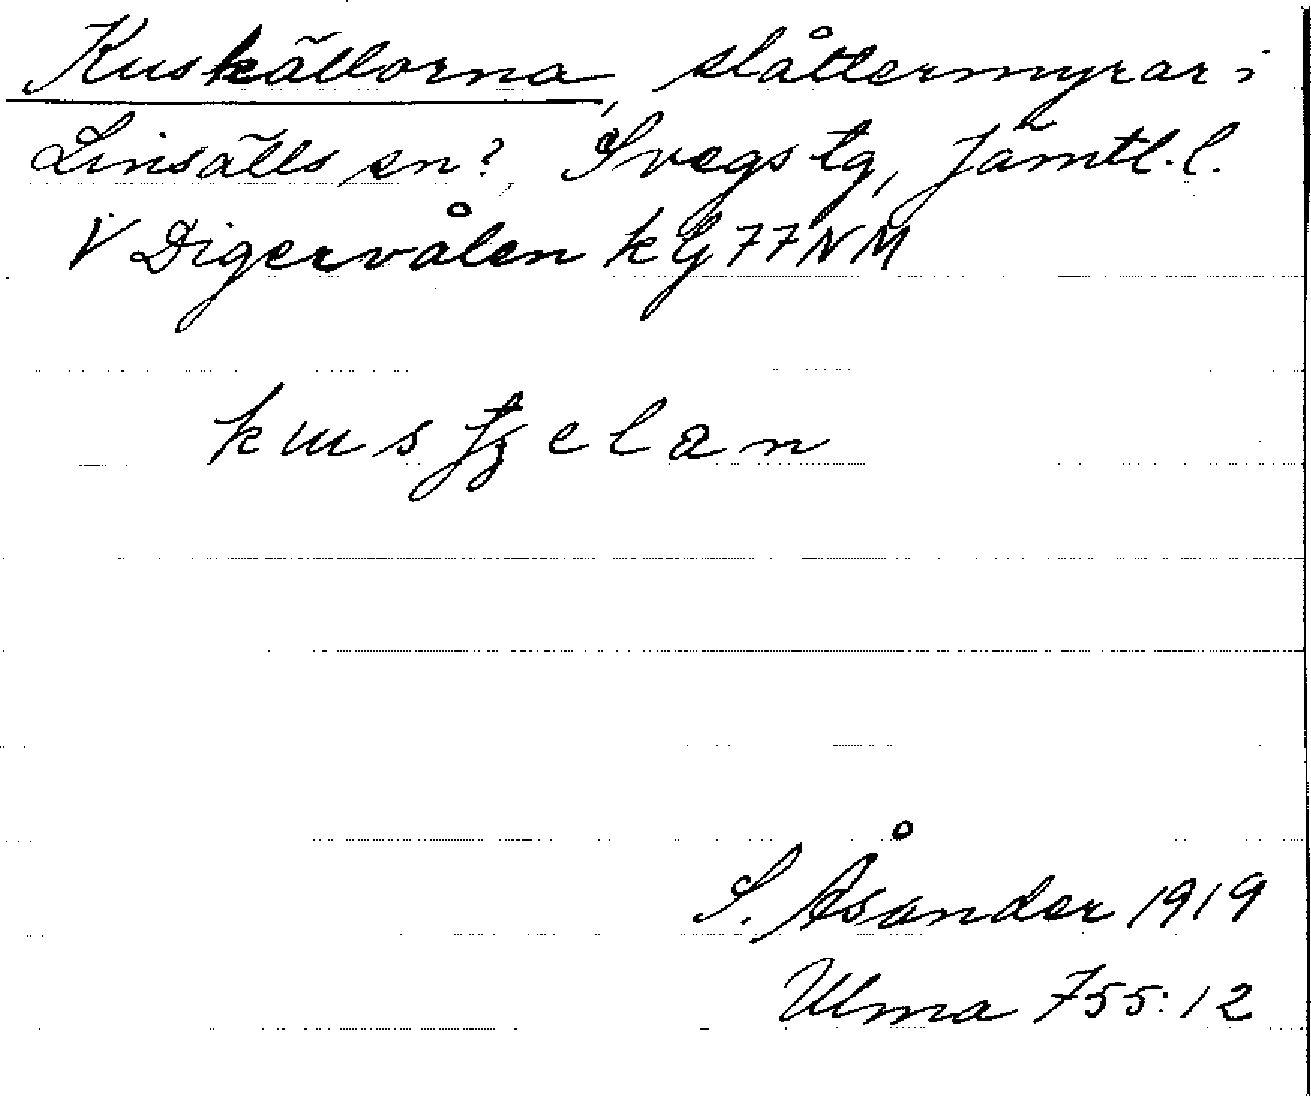 Kuskällorna, slåttermyrar i
Linsälls sn?, Svegs tg, Jämtl. l.
V Digervålen kG77NM
S. Åsander 1919
Ulma 755:12